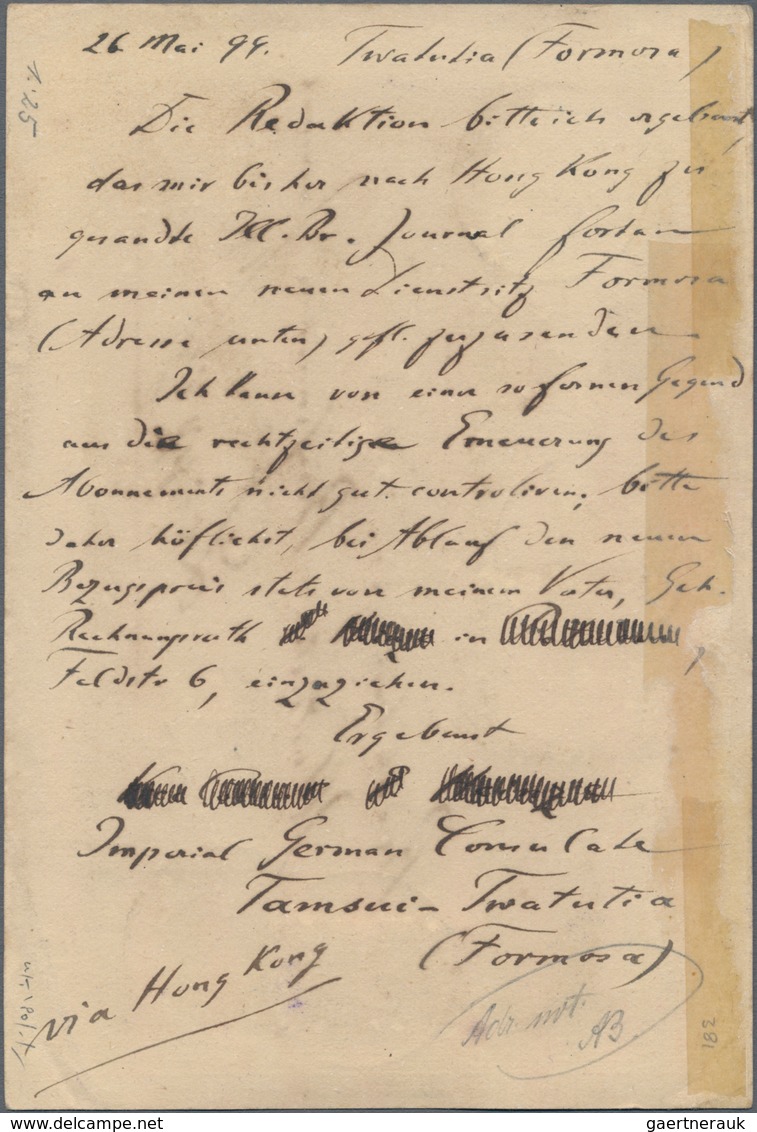 26 Mai 99. Twatutia (Formosa)
1.25
Die Redaktion bitte ich ergebenst,
das mir bisher nach Hong Kong zu
gesandte Ill. Br. Journal fortan
an meinen neuen Dienstsitz Formosa
(Adresse unten) gefl. zuzusenden
Ich kann von einer so fernen Gegend
aus die rechtzeitige Erneuerung des
Abonnements nicht gut controliren, bitte
daher höflichst, bei Ablauf den neuen
Bezugspreis stets von meinem Vater, Geh.
Rechnungsrath in ,
Feldstr 6, einzuziehen.
Ergebenst
Imperial German Consulate
Tamsui - Twatutia
(Formosa)
via Hong Kong
Adr. not.
AB
381
gaertnerauk www.delcampe.net